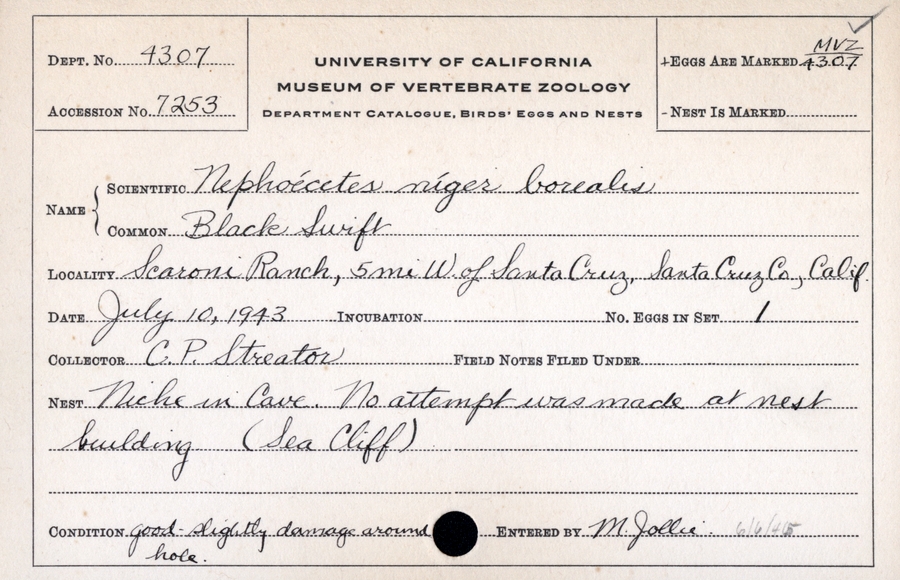 DEPT. No. 4307
ACCESSION No. 7253
UNIVERSITY OF CALIFORNIA
MUSEUM OF VERTEBRATE ZOOLOGY
DEPARTMENT CATALOGUE, BIRDS' EGGS AND NESTS
MVZ
+EGGS ARE MARKED 4307
- NEST IS MARKED
NAME { SCIENTIFIC Nephoécetes niger borealis
COMMON Black Swift
LOCALITY Scaroni Ranch, 5 mi W. of Santa Cruz, Santa Cruz Co., Calif.
DATE July 10, 1943 INCUBATION No. EGGS IN SET 1
COLLECTOR C. P. Streator FIELD NOTES FILED UNDER
NEST Niche in Cave. No attempt was made at nest
building (Sea Cliff)
CONDITION good - slightly damage around ENTERED BY M. Jollie. 6/6/45
hole.